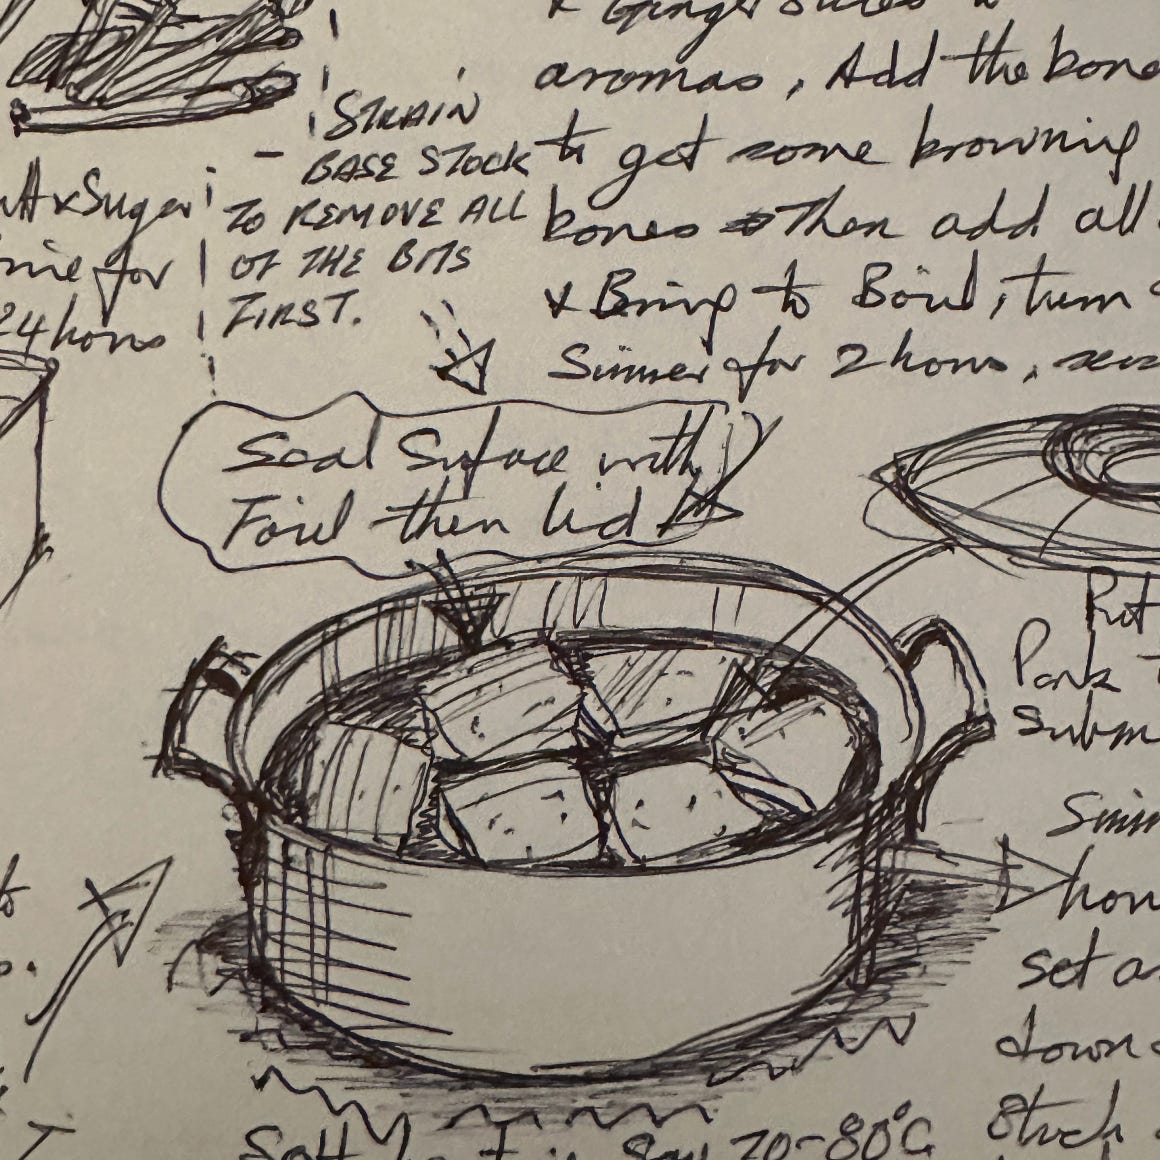 & Ginger slices
aromas, Add the bone
to get some browning
bones Then add all
& Bring to Boil, turn
Simmer for 2 hours,
- STRAIN
BASE STOCK
TO REMOVE ALL
OF THE BITS
FIRST.
& Sugar
for
24 hours
Seal Surface with
Foil then lid
Put
Pork
Subm
Simm
hour
set as
down
Stock
70-80°C